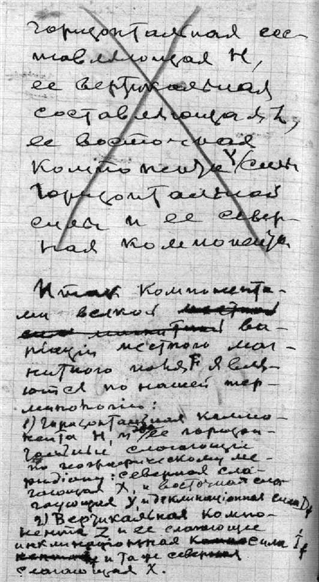 горизонтальная сос-
тавляющая H,
ее вертикальная
составляющая Z,
ее восточная
компонента Y силы
горизонтальной
силы и ее север-
ная компонента
Итак компонента-
ми всякой местной
магнитной ва-
риации местного маг-
нитного поля F явля-
ются по нашей тер-
минологии:
1) Горизонтальная компо-
нента H, и ее горизон-
тальные слагающие
по географическому ме-
ридиану: северная сла-
гающая X, и восточная слаг
гающая Y, и деклинационная сила
2) Вертикальная компо-
нента Z и ее слагающие
инклинационная сила
и та же северная
слагающая X.